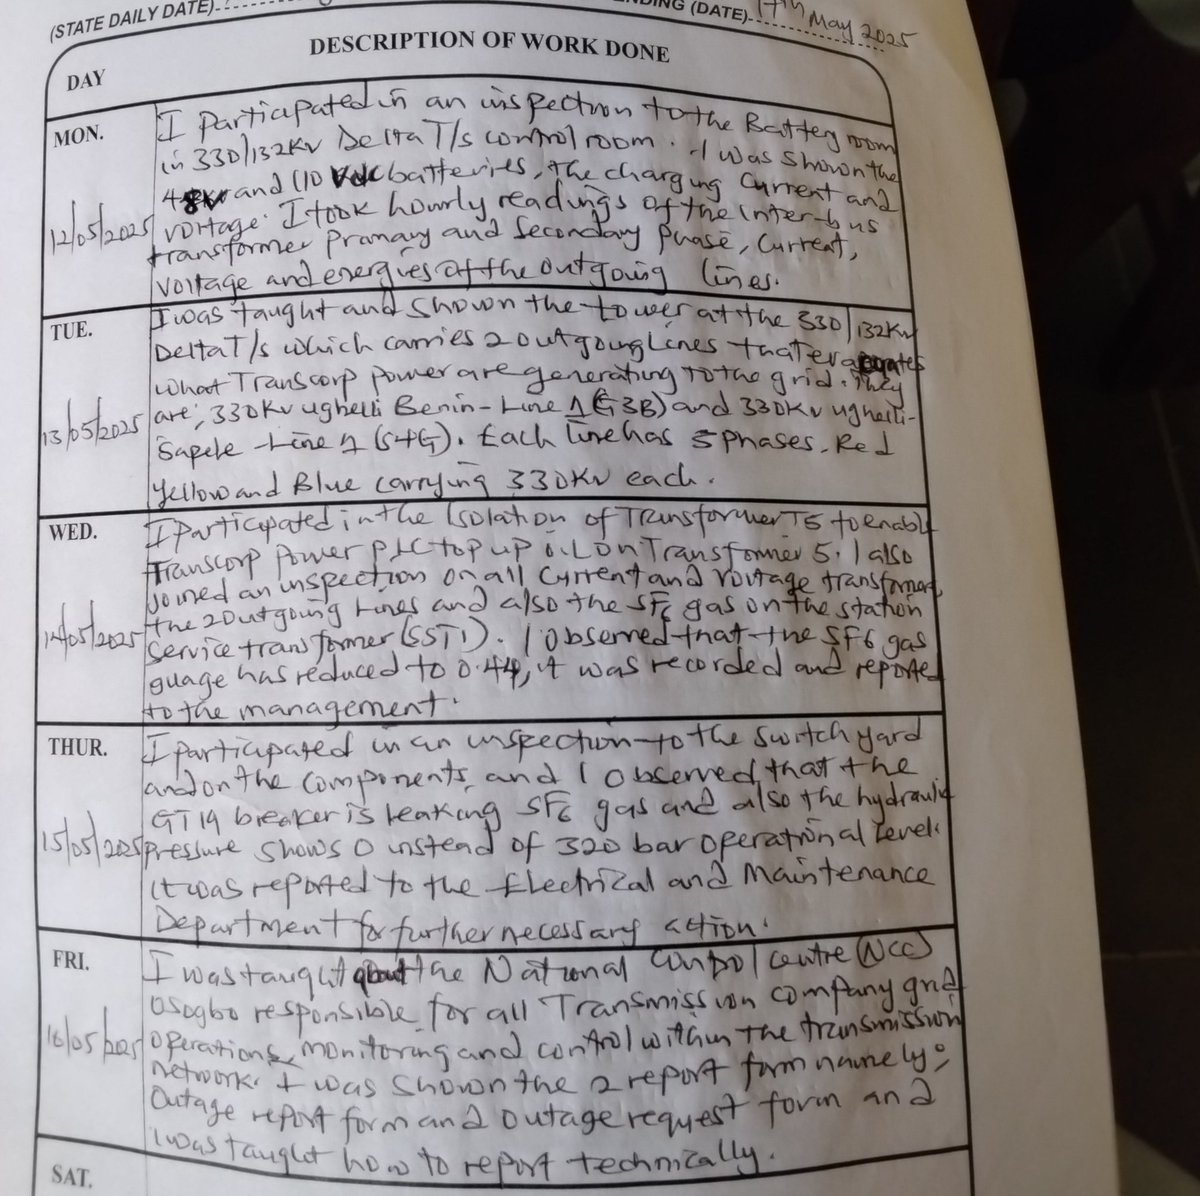 (STATE DAILY DATE)
ENDING (DATE) 17th May 2025
DAY
DESCRIPTION OF WORK DONE
MON.
12/05/2025
I participated in an inspection to the Battery room
in 330/132KV Delta T/s control room. I was shown the
48V and 110 Vdc batteries, the charging current and
voltage. I took hourly readings of the inter-bus
transformer primary and secondary phase, current,
voltage and energies of the outgoing lines.
TUE.
13/05/2025
I was taught and shown the tower at the 330/132KV
Delta T/s which carries 2 outgoing lines that evacuates
what Transcorp power are generating to the grid. They
are; 330KV ughelli Benin-Line 1 (G3B) and 330KV ughelli-
Sapele Line 1 (S4G). Each line has 3 phases. Red
Yellow and Blue carrying 330KV each.
WED.
14/05/2025
I participated in the Isolation of Transformer T5 to enable
Transcorp power PLC top up oil on Transformer 5. I also
joined an inspection on all current and voltage transformers,
the 2 outgoing lines and also the SF6 gas on the station
service transformer (SST1). I observed that the SF6 gas
guage has reduced to 0.44, it was recorded and reported
to the management.
THUR.
15/05/2025
I participated in an inspection to the switch yard
and on the components, and I observed that the
GT19 breaker is leaking SF6 gas and also the hydraulic
pressure shows 0 instead of 320 bar operational level.
It was reported to the Electrical and Maintenance
Department for further necessary action.
FRI.
16/05/2025
I was taught about the National control centre (NCC)
Osogbo responsible for all Transmission company grid
operations, monitoring and control within the transmission
network. I was shown the 2 report form namely;
Outage report form and outage request form and
I was taught how to report technically.
SAT.